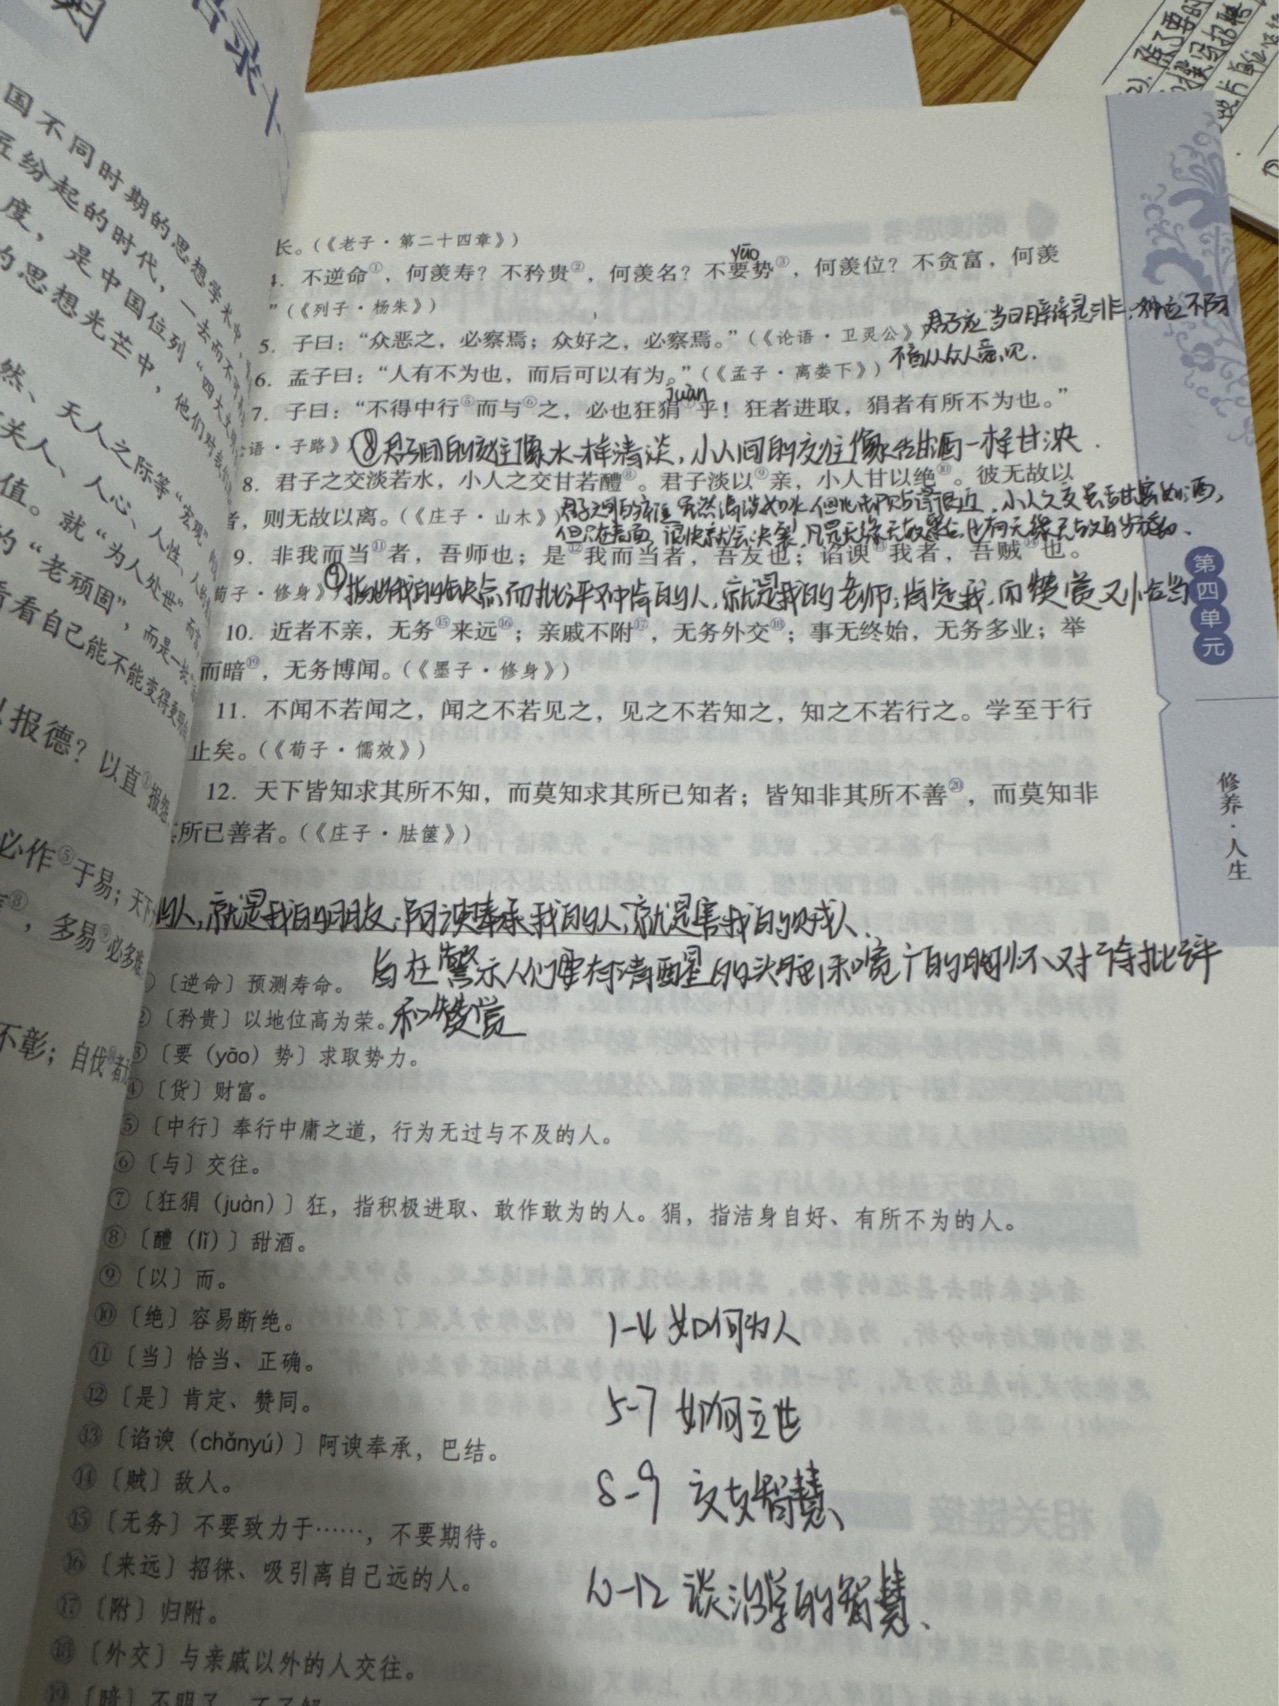 国不同时期的思想学术中，
纷起的时代，一去而不
度，是中国位列“四大
的思想光芒中，他们对
然、天人之际等“宏观”
关人、人心、人性、人
值。就“为人处世”而言，
的“老顽固”，而是一
看看自己能不能变得更
报德？以直①报怨
必作⑤于易；天下
⑧，多易⑨必多难
不彰；自伐⑪者
长。（《老子·第二十四章》）
4. 不逆命①，何羡寿？不矜贵②，何羡名？不要势③，何羡位？不贪富，何羡
yāo
”（《列子·杨朱》）
5. 子曰：“众恶之，必察焉；众好之，必察焉。”（《论语·卫灵公》）
君子应当明辨是非，独立不阿
不盲从众人意见．
6. 孟子曰：“人有不为也，而后可以有为。”（《孟子·离娄下》）
juàn
7. 子曰：“不得中行⑤而与⑥之，必也狂狷⑦乎！狂者进取，狷者有所不为也。”
语·子路》）
⑧君子间的交往像水一样清淡，小人间的交往像甘酒一样甘浓．
8. 君子之交淡若水，小人之交甘若醴⑧。君子淡以⑨亲，小人甘以绝⑩。彼无故以
者，则无故以离。（《庄子·山木》）
君子之间的交往虽然清淡如水，但心却贴得很近，小人之交是甘蜜如酒，
但浮在表面，很快就会决裂，凡是无缘无故聚合，也将无缘无故
9. 非我而当⑪者，吾师也；是⑫我而当者，吾友也；谄谀⑬我者，吾贼⑭也。
荀子·修身》）
⑨指出我的缺点而批评又中肯的人，就是我的老师；肯定我，而赞赏又恰当
10. 近者不亲，无务⑮来远⑯；亲戚不附⑰，无务外交⑱；事无终始，无务多业；举
而暗⑲，无务博闻。（《墨子·修身》）
11. 不闻不若闻之，闻之不若见之，见之不若知之，知之不若行之。学至于行
止矣。（《荀子·儒效》）
12. 天下皆知求其所不知，而莫知求其所已知者；皆知非其所不善⑳，而莫知非
其所已善者。（《庄子·胠箧》）
的人，就是我的朋友；阿谀奉承我的人，就是害我的贼人．
旨在警示人们要有清醒的头脑和宽广的胸怀对待批评
和赞赏
①〔逆命〕预测寿命。
②〔矜贵〕以地位高为荣。
③〔要（yāo）势〕求取势力。
④〔货〕财富。
⑤〔中行〕奉行中庸之道，行为无过与不及的人。
⑥〔与〕交往。
⑦〔狂狷（juàn）〕狂，指积极进取、敢作敢为的人。狷，指洁身自好、有所不为的人。
⑧〔醴（lǐ）〕甜酒。
⑨〔以〕而。
⑩〔绝〕容易断绝。
⑪〔当〕恰当、正确。
⑫〔是〕肯定、赞同。
⑬〔谄谀（chǎnyú）〕阿谀奉承，巴结。
⑭〔贼〕敌人。
⑮〔无务〕不要致力于……，不要期待。
⑯〔来远〕招徕、吸引离自己远的人。
⑰〔附〕归附。
⑱〔外交〕与亲戚以外的人交往。
⑲〔暗〕不明了、不了解
1-4 如何为人
5-7 如何立世
8-9 交友智慧、
10-12 谈治学的智慧、
第四单元
修养·人生